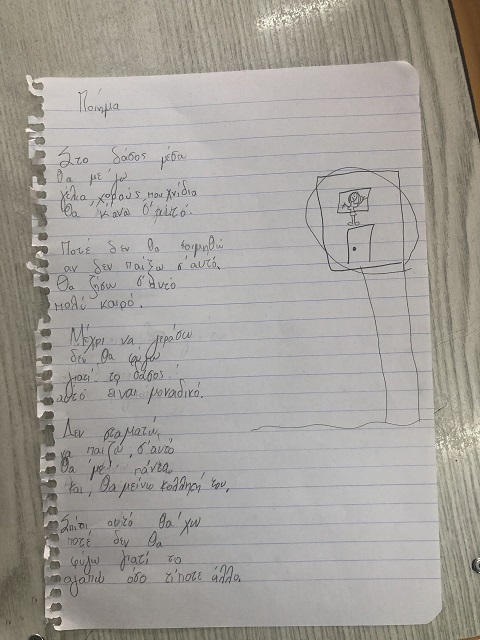 Ποίημα
Στο δάσος μέσα
θα με 'γω
γέλια, χορούς, παιχνίδια
θα κάνω σ'αυτό.
Ποτέ δεν θα κοιμηθώ
αν δεν παίξω σ'αυτό.
Θα ζήσω σ'αυτό
πολύ καιρό.
Μέχρι να γεράσω
δεν θα φύγω
γιατί το δάσος
αυτό είναι μοναδικό.
Δεν σταματώ,
να παίζω, σ'αυτό
θα με πάντα
και, θα μείνω του.
Σπίτι αυτό θα'χω
ποτέ δεν θα
φύγω γιατί το
αγαπώ όσο τίποτε άλλο.